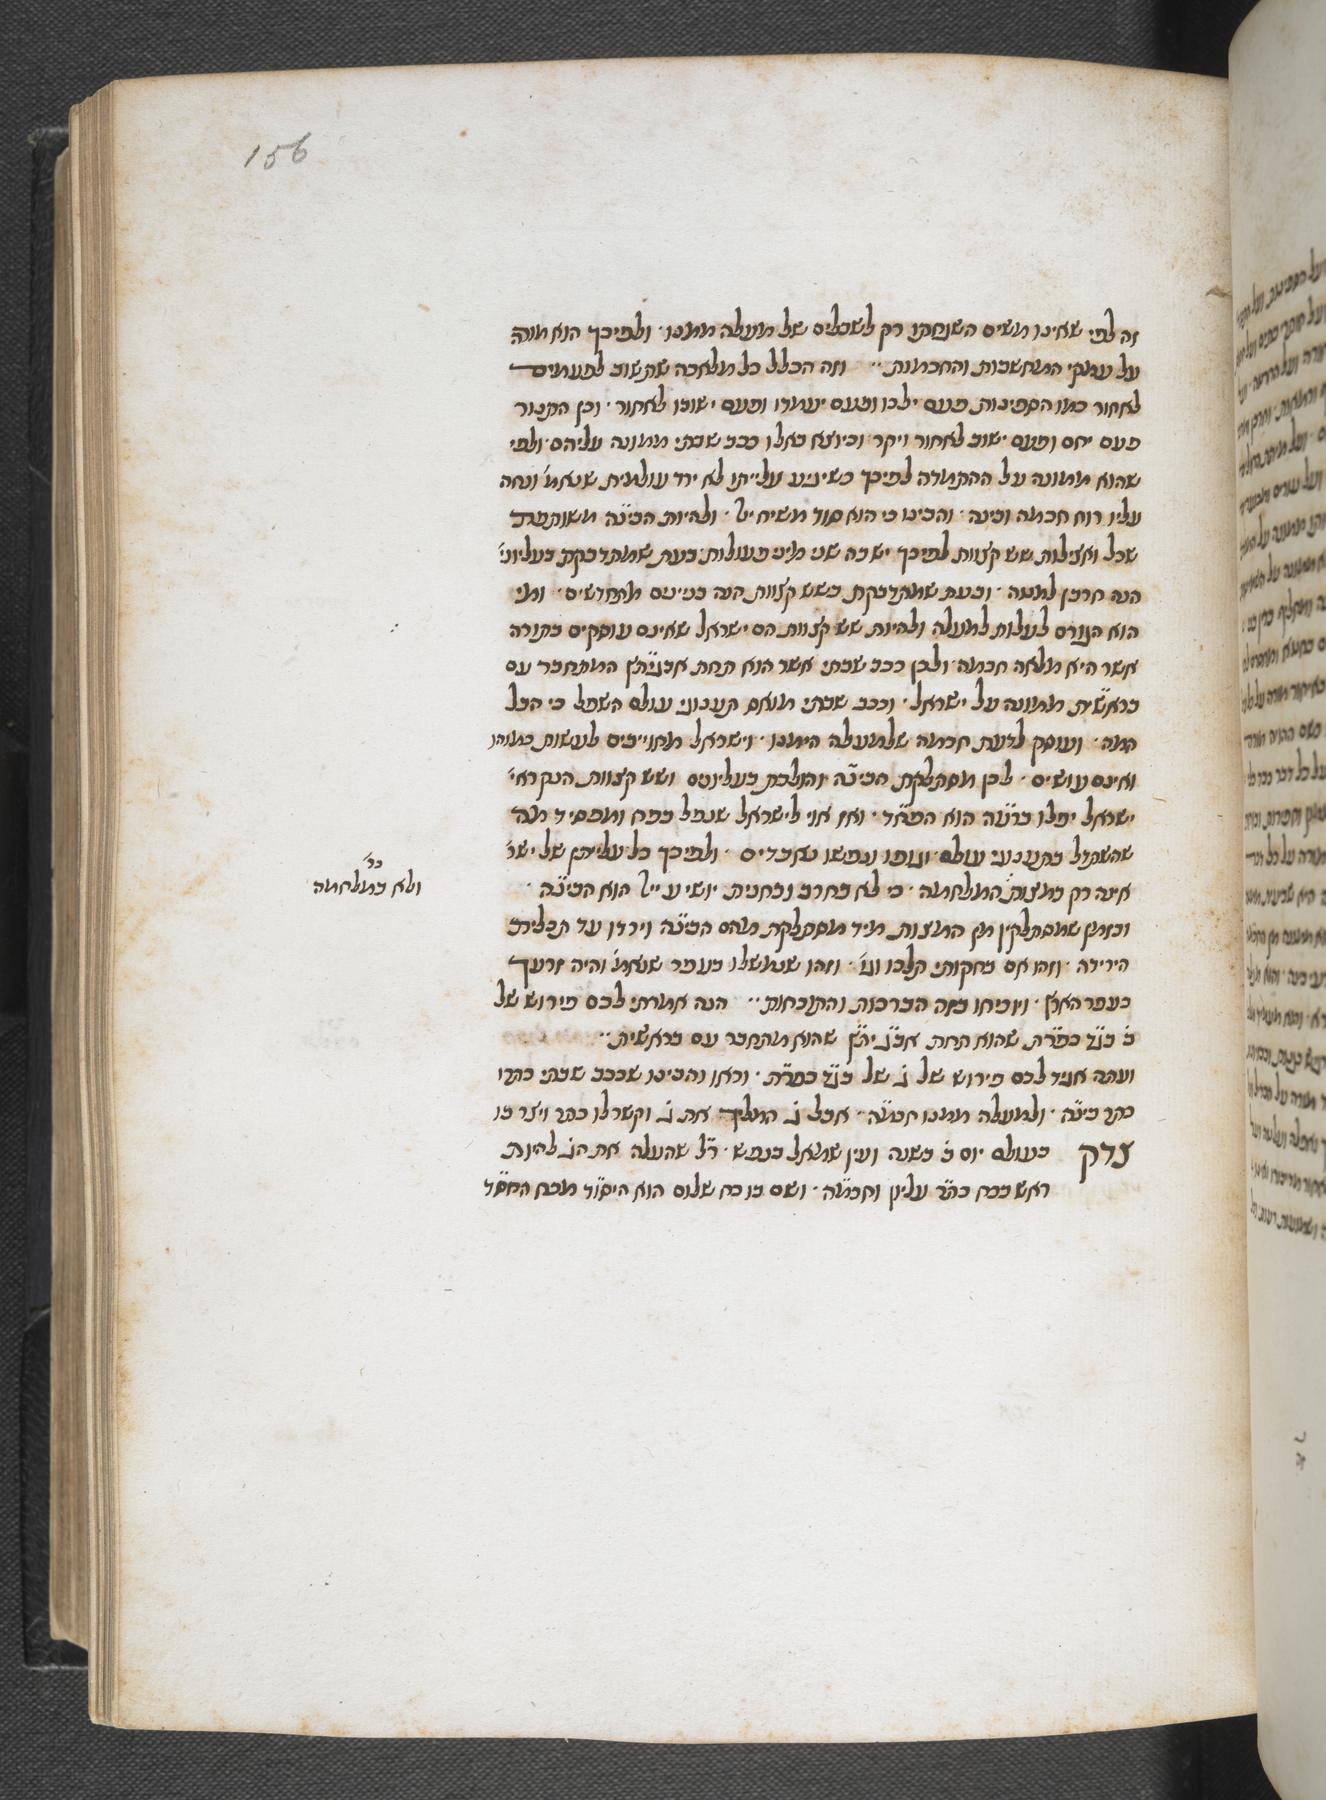 156
זה לפי שאינו משים השגחתו רק לשכלים של מעלה ממנו · ולפיכך הוא מורה
על עמקי המחשבות והחכמות ·· וזה הכלל כל מלאכה שתשוב לפעמים
לאחור כמו הספינות פעם ילכו ופעם יעמדו ופעם ישובו לאחור · וכן התנור
פעם יחם ופעם ישוב לאחור ויקר · וכיוצא באלו ככב שבתי ממונה עליהם · ולפי
שהוא ממונה על ההתמדה לפיכך כשיגיע עלייתו לא ירד עולמית שנאמ' ונחה
עליו רוח חכמה ובינה · והבינו כי הוא סוד משיח י"י · ולהיות הבינ"ה משותפת
שכל ואצילות שש קצוות לפיכך יש בה שני מיני פעולות · בעת שמתדבקת בעליוני'
הנה חרבן למטה · ובעת שמתדבקת בשש קצוות הנה בניינים מתחדשים · ומי
הוא הגורם לעלות למעלה ולהיות שש קצוות הם ישראל שאינם עוסקים בתורה
אשר היא מלאה חכמה · ולכן ככב שבתי אשר הוא תחת אבגית"ץ המתחבר עם
בראשי"ת ממונה על ישראל · וככב שבתי מואס תענוגי עולם השפל כי הבל
המה · ועוסק לדעת חכמה שלמעלה הימנו · וישראל מחוייבים לעשות כמוהו
ואינם עושים · לכן מסתלקת הבינ"ה והולכת בעליונים ושש קצוות הנקראי'
ישראל יפלו ברע"ה הוא הפח"ד · ואז אוי לישראל שנפל בפח ומפסיד מה
שהשתדל בתענוגי עולם · וגופו ונפשו נאבדים · ולפיכך כל עלייתן של ישר'
אינה רק במצות המלחמה · כי לא בחרב ובחנית יושיע י"י הוא הבינ"ה ·
ובזמן שמסתלקין מן המצות מיד מסתלקת מהם הבינ"ה וירדו עד תכלית
הירידה · וזהו אם בחקותי תלכו וגו' · וזהו שנמשלו בעפר שנאמ' והיה זרעך
כעפר הארץ · ויוכיחו בזה הברכות והתוכחות ·· הנה אמרתי לכם פירוש של
ב' בג"ד כפר"ת שהוא תחת אב"ג ית"ץ שהוא מתחבר עם בראשית ··
ועתה אגיד לכם פירוש של ג' של בג"ד כפר"ת · וראו והבינו שככב שבתי כתרו
כתר בינ"ה · ולמעלה ממנו חכמ"ה · אבל ג' המליך את ג' וקשר לו כתר ויצר בו
צדק בעולם יום ב' בשנה ועין שמאל בנפש · ר"ל שהעלה את הג' להיות
ראש בכח כת"ר עליון וחכמ"ה · ושם בו כח שלום הוא היסו"ד מכח החס"ד
כר'
ולא במלחמה